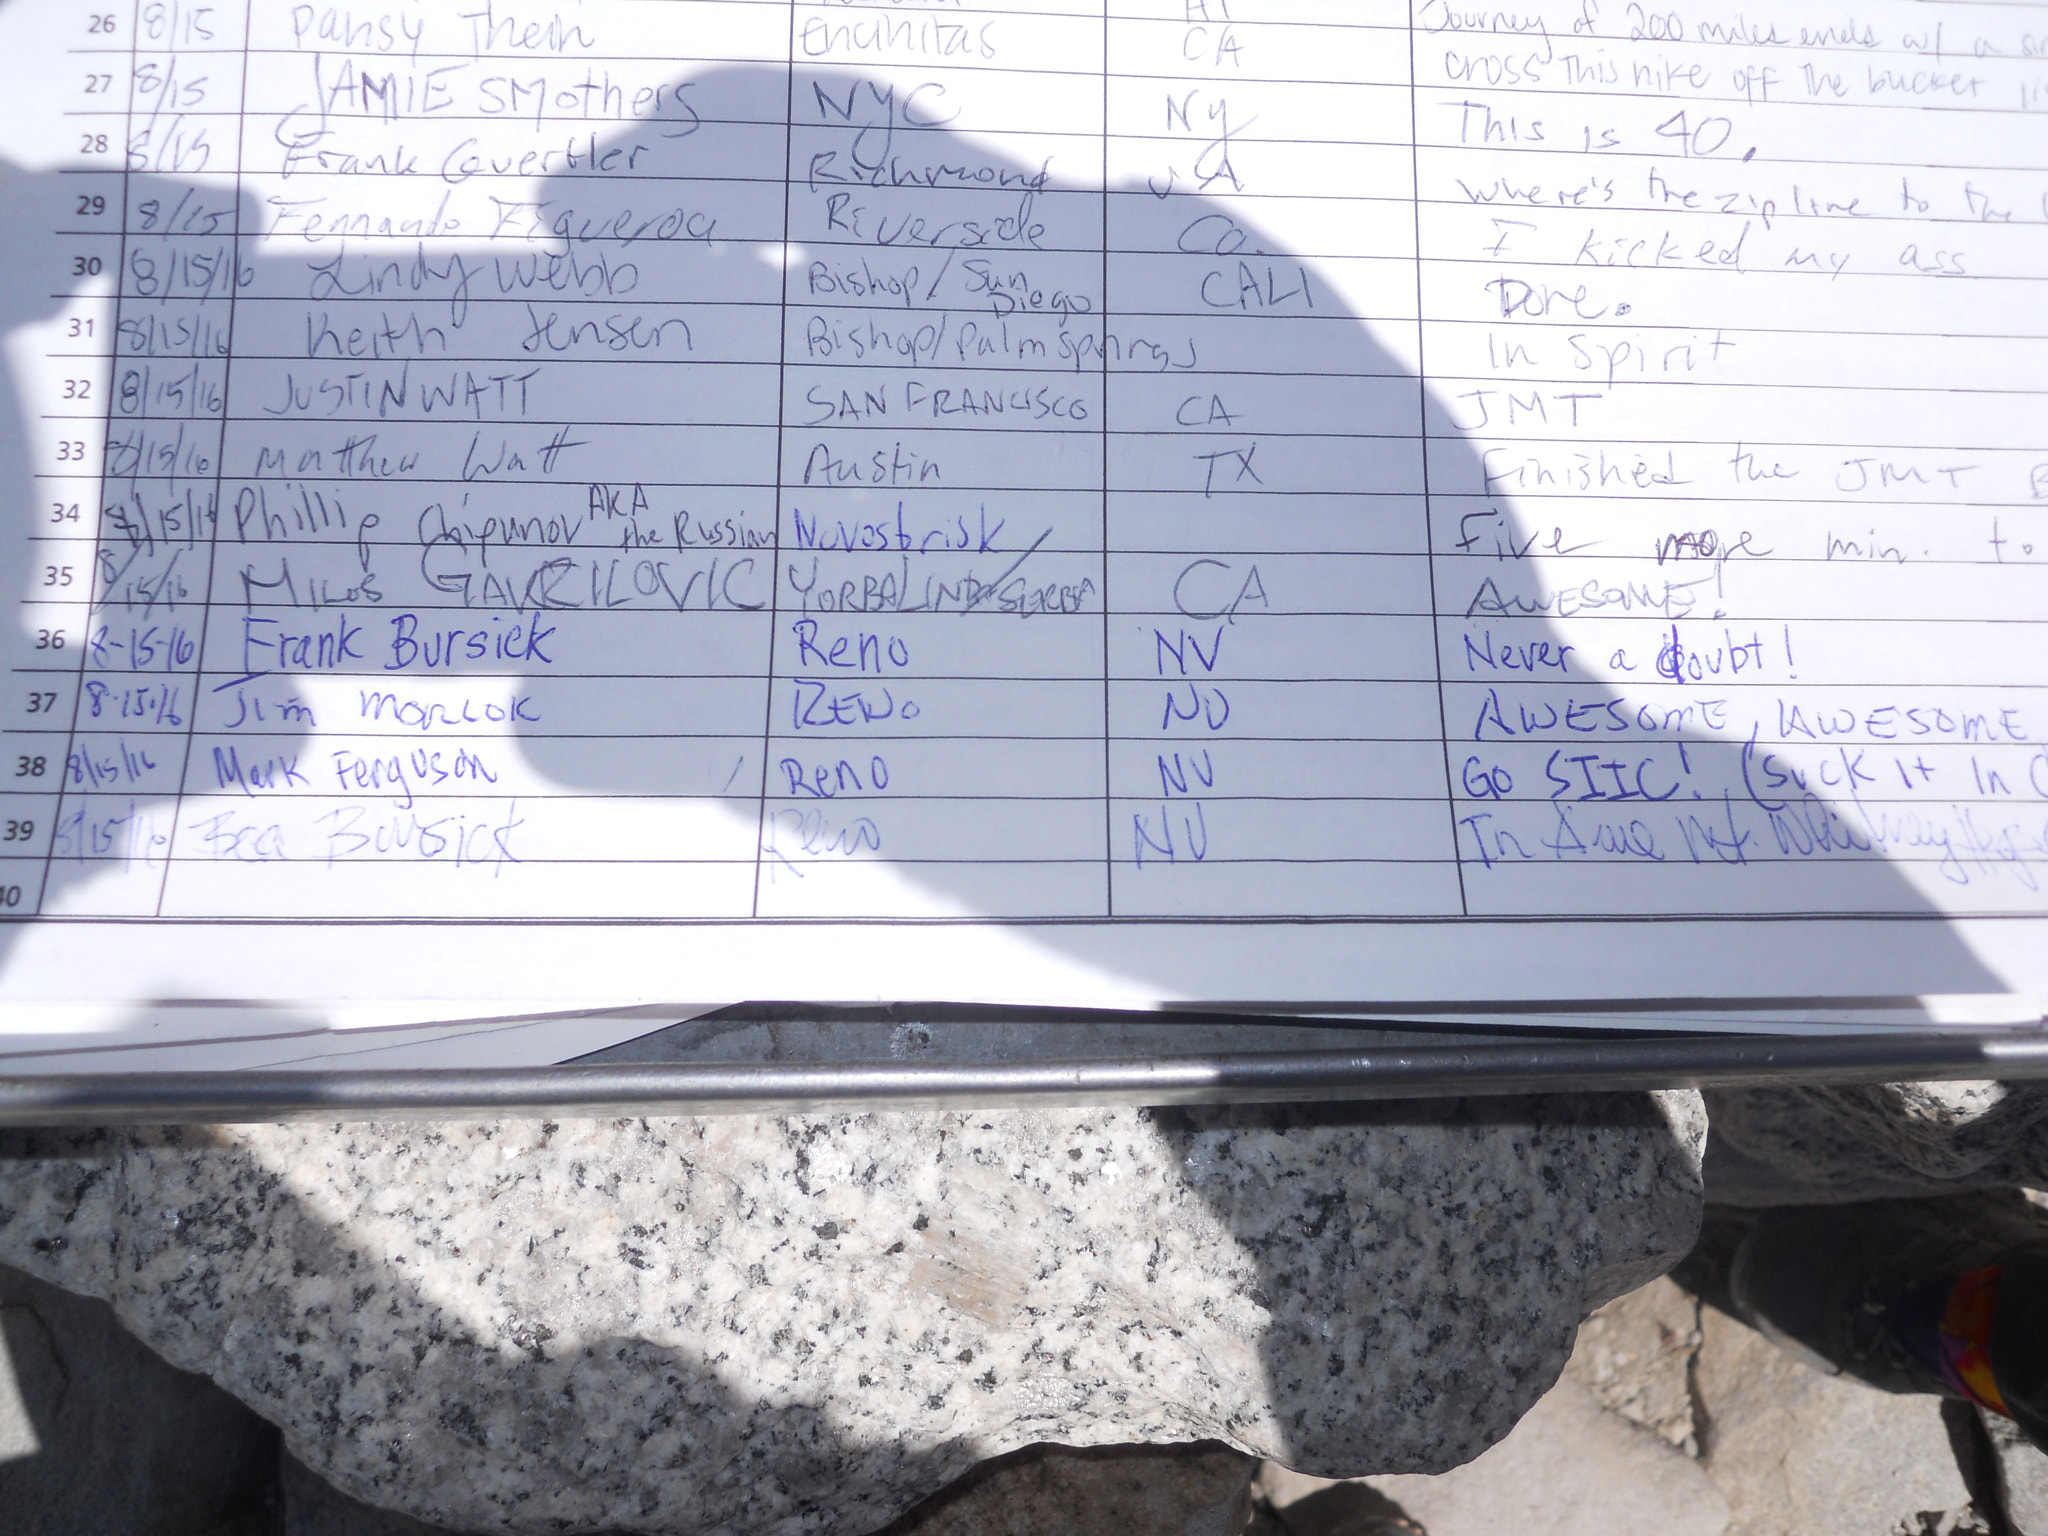 26 8/15 Pansy Thein Encinitas CA Journey of 200 miles ends w/ a
cross this hike off the bucket
27 8/15 JAMIE SMothers NYC Ny This is 40.
28 8/15 Frank Guertler Richmond VA Where's the zip line to the
29 8/15 Fernando Figueroa Riverside Ca. I kicked my ass
30 8/15/16 Lindy Webb Bishop/San Diego CALI Done.
31 8/15/16 Keith Jensen Bishop/Palm Springs In Spirit
32 8/15/16 JUSTIN WATT SAN FRANCISCO CA JMT
33 8/15/16 Matthew Watt Austin TX Finished the JMT
34 8/15/16 Phillip Chipunov AKA the Russian Novosbrisk Five more min. to
35 8/15/16 MILOS GAVRILOVIC YORBA LINDA/SERBIA CA AWESOME!
36 8-15-16 Frank Bursick Reno NV Never a doubt!
37 8-15-16 Jim Morlok RENO NV AWESOME, AWESOME
38 8/15/16 Mark Ferguson Reno NV Go SIIC! (Suck it In
39 8/15/16 Bea Bursick Reno NV In Awe Mt. Whitney
40